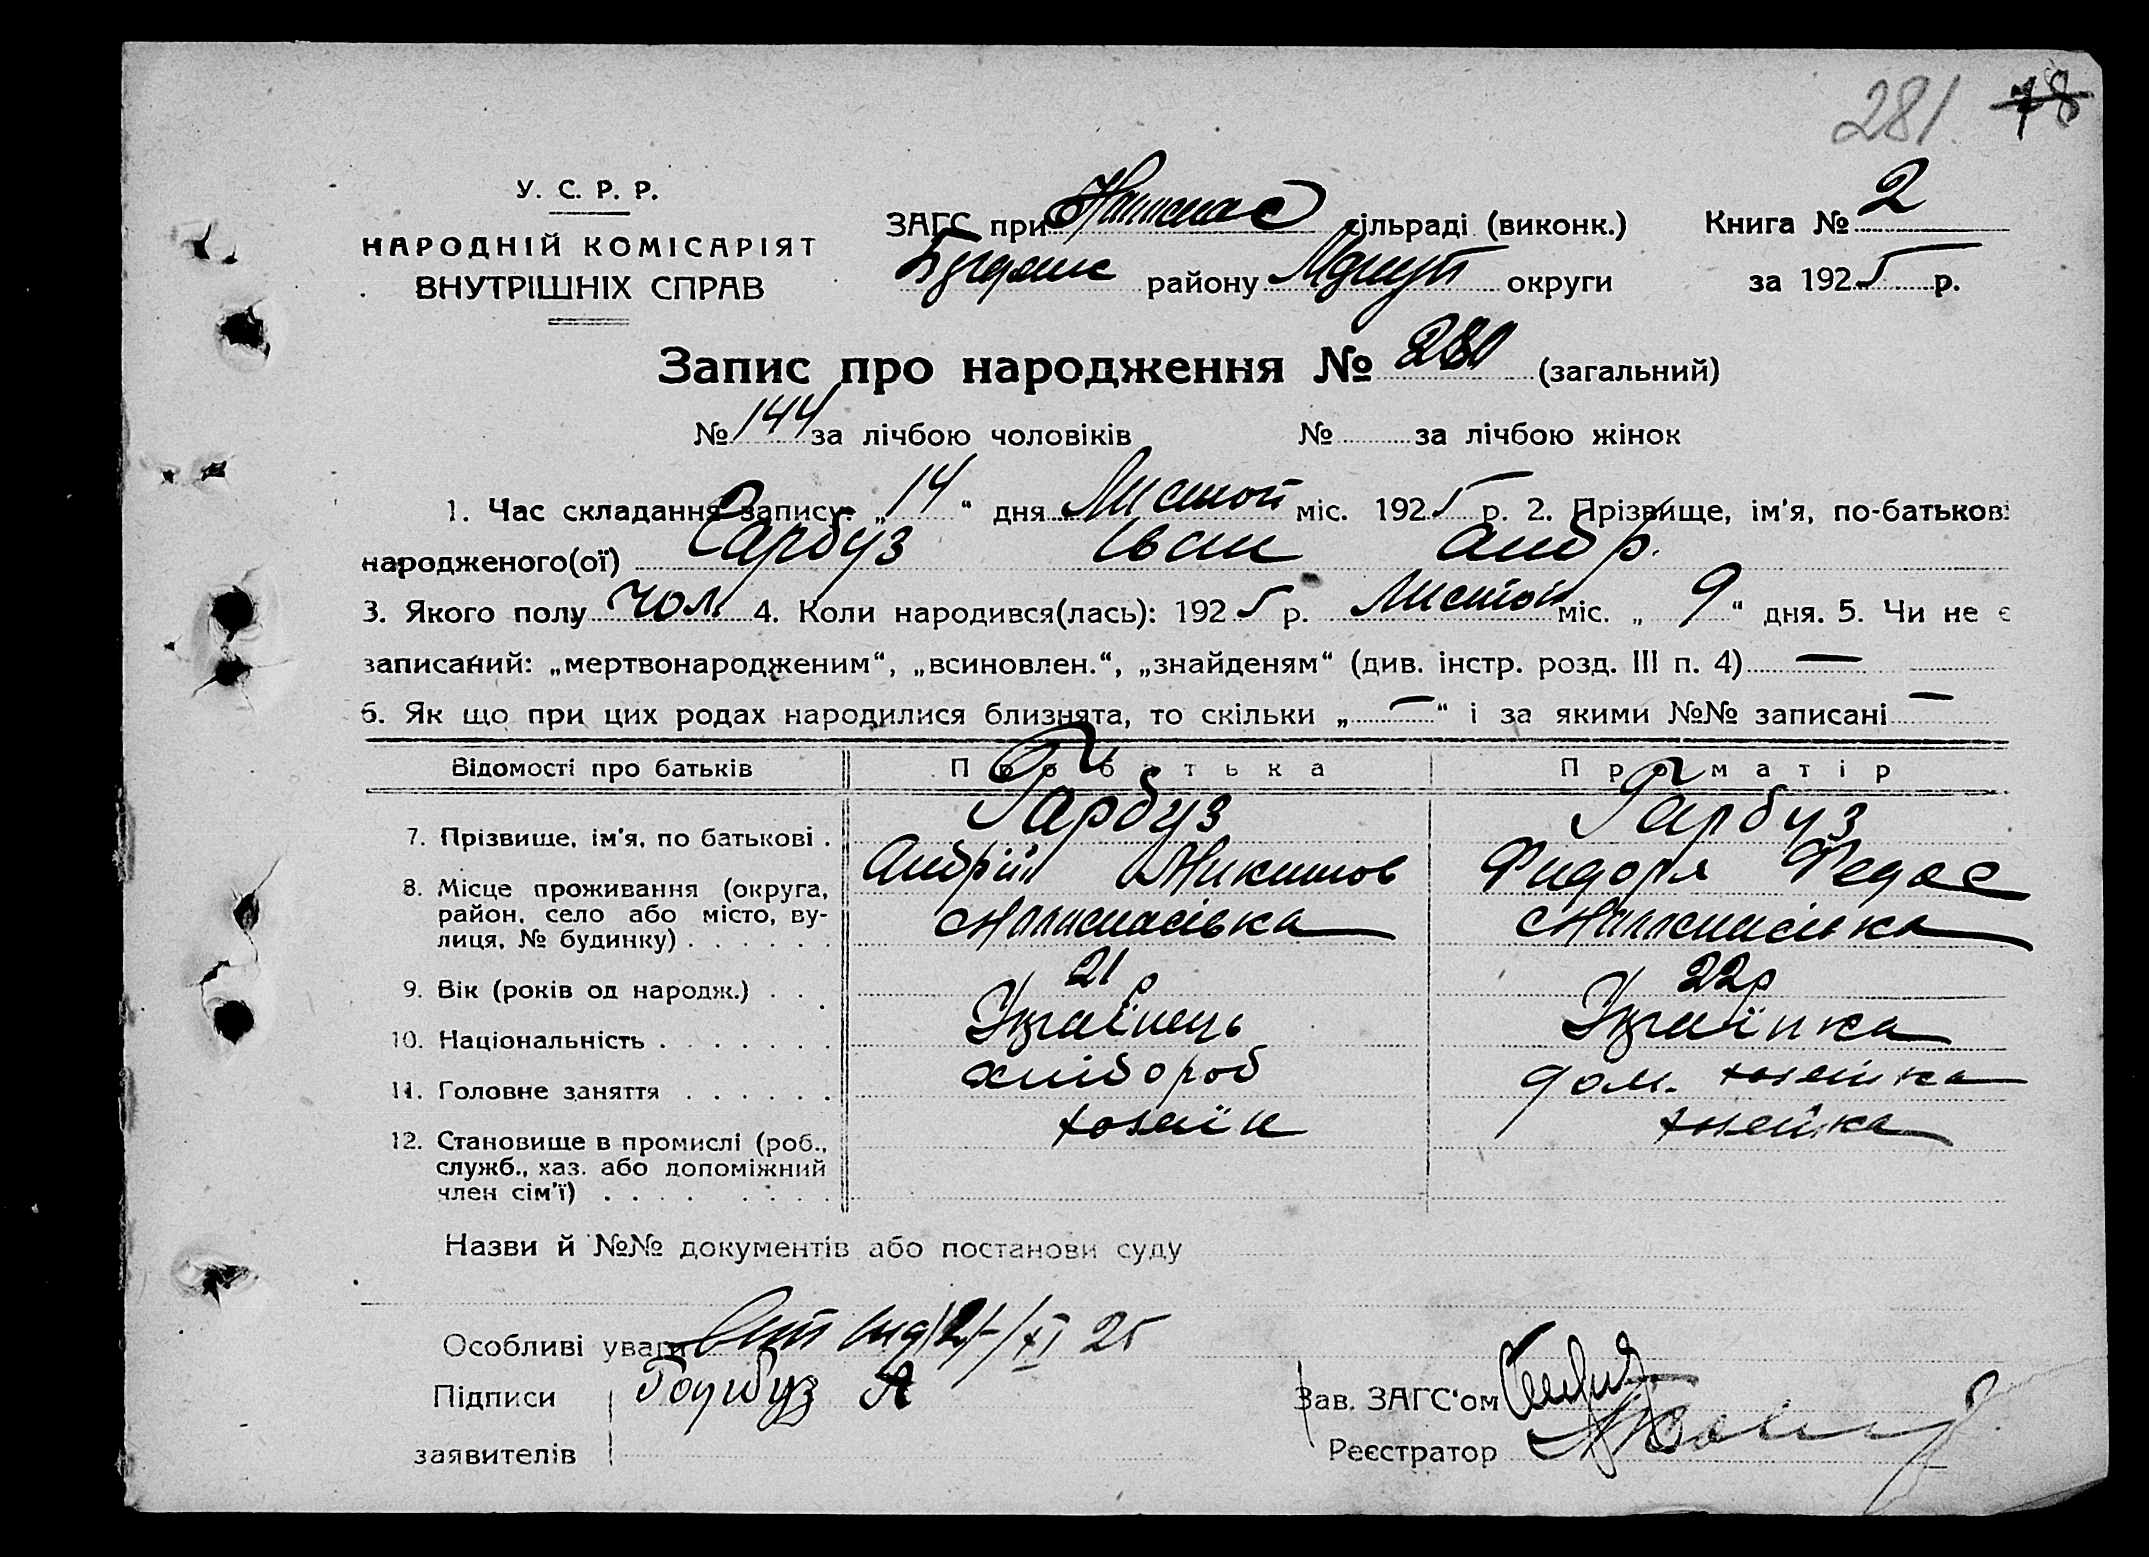 281 78
У. С. Р. Р.
НАРОДНІЙ КОМІСАРІЯТ
ВНУТРІШНІХ СПРАВ
ЗАГС при сільраді (виконк.) Книга № 2
району округи за 1925 р.
Запис про народження № 280 (загальний)
№ 144 за лічбою чоловіків № за лічбою жінок
1. Час складання запису: „ 14 “ дня Листоп міс. 1925 р. 2. Прізвище, ім'я, по-батькові
народженого(ої) Гарбуз Іван Андр.
3. Якого полу чол. 4. Коли народився(лась): 1925 р. Листоп міс. „ 9 “ дня. 5. Чи не є
записаний: „мертвонародженим“, „всиновлен.“, „знайденям“ (див. інстр. розд. III п. 4) —
6. Як що при цих родах народилися близнята, то скільки „ — “ і за якими №№ записані —
Відомості про батьків Про батька Про матір
7. Прізвище, ім'я, по батькові . Гарбуз Гарбуз
Андрій Микитов Фидора Федос
8. Місце проживання (округа,
район, село або місто, ву-
лиця, № будинку) . . . . . .
9. Вік (років од народж.) . . . 21 р 22 р
10. Національність . . . . . . . Українець Українка
11. Головне заняття . . . . . . хлібороб дом. хозяйка
12. Становище в промислі (роб., хозяїн хозяйка
служб., хаз. або допоміжний
член сім'ї) . . . . . . . .
Назви й №№ документів або постанови суду
Особливі уваги XI 25
Підписи Гарбуз А
заявителів
Зав. ЗАГС'ом
Реєстратор